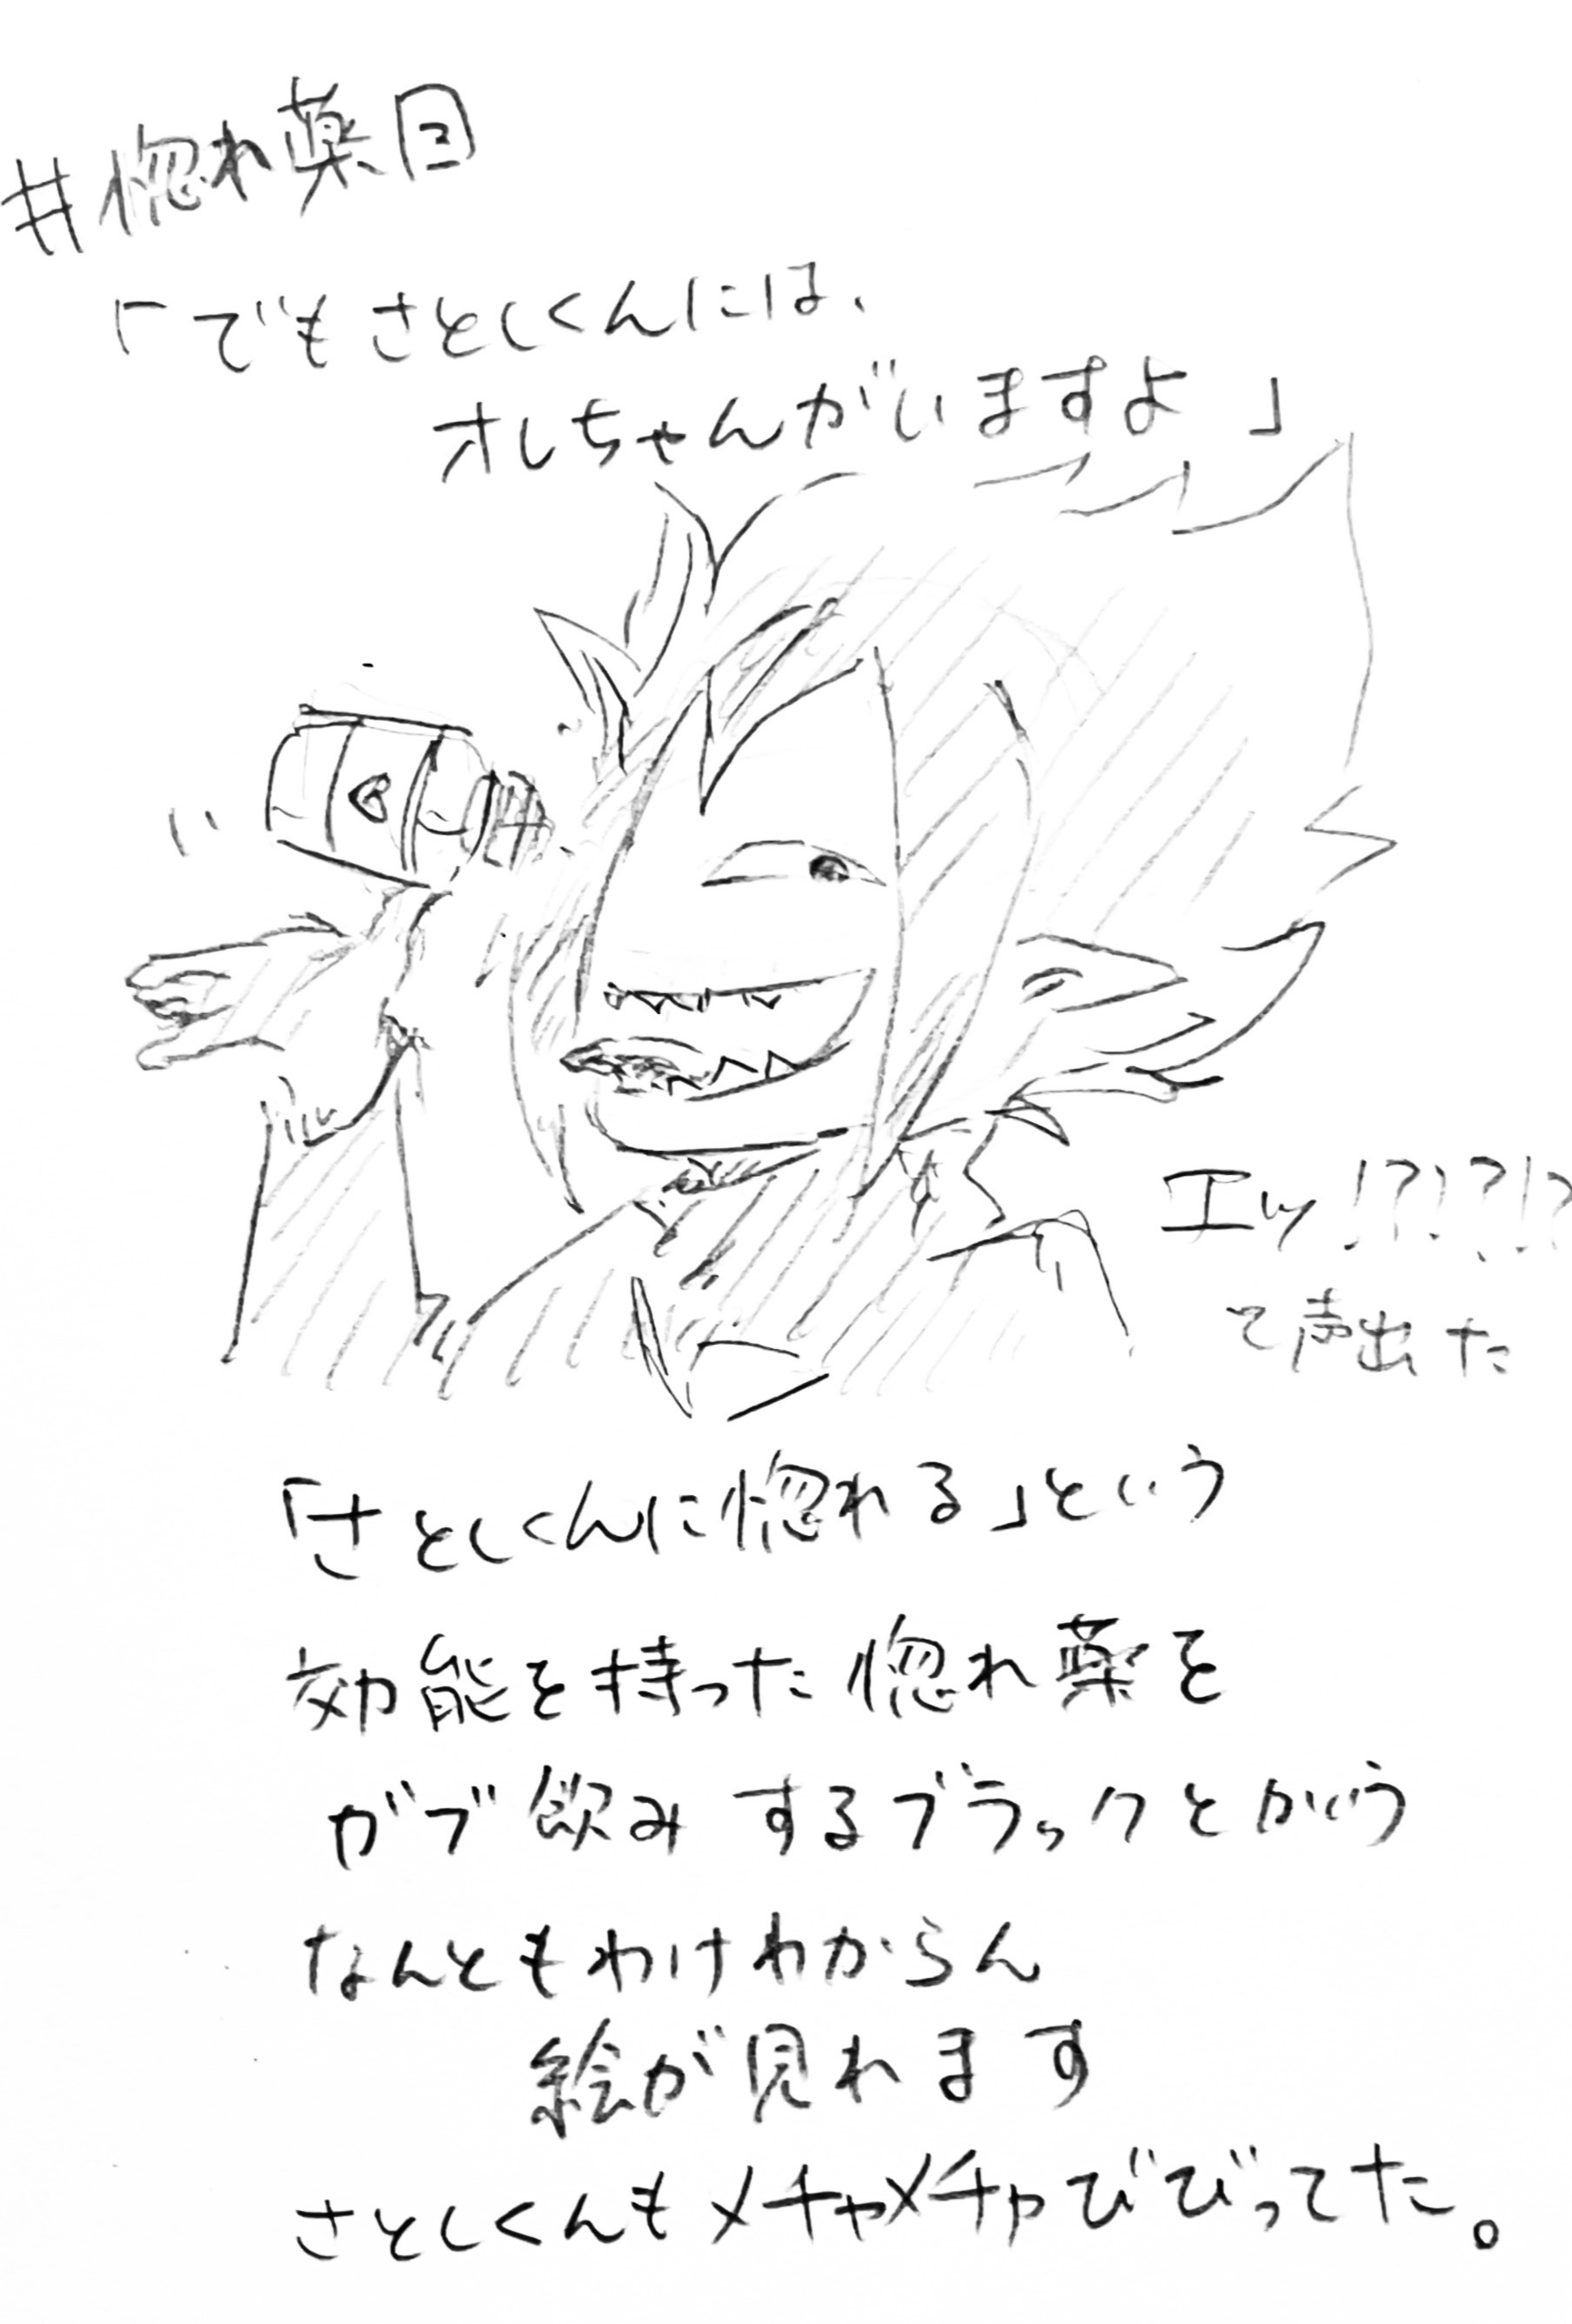 #惚れ薬回
「でもさとしくんには、
オレちゃんがいますよ」
エッ!?!?!?
て声出た
「さとしくんに惚れる」という
効能を持った惚れ薬を
がブ飲みするブラックとかいう
なんともわけわからん
絵が見れます
さとしくんもメチャメチャびびってた。